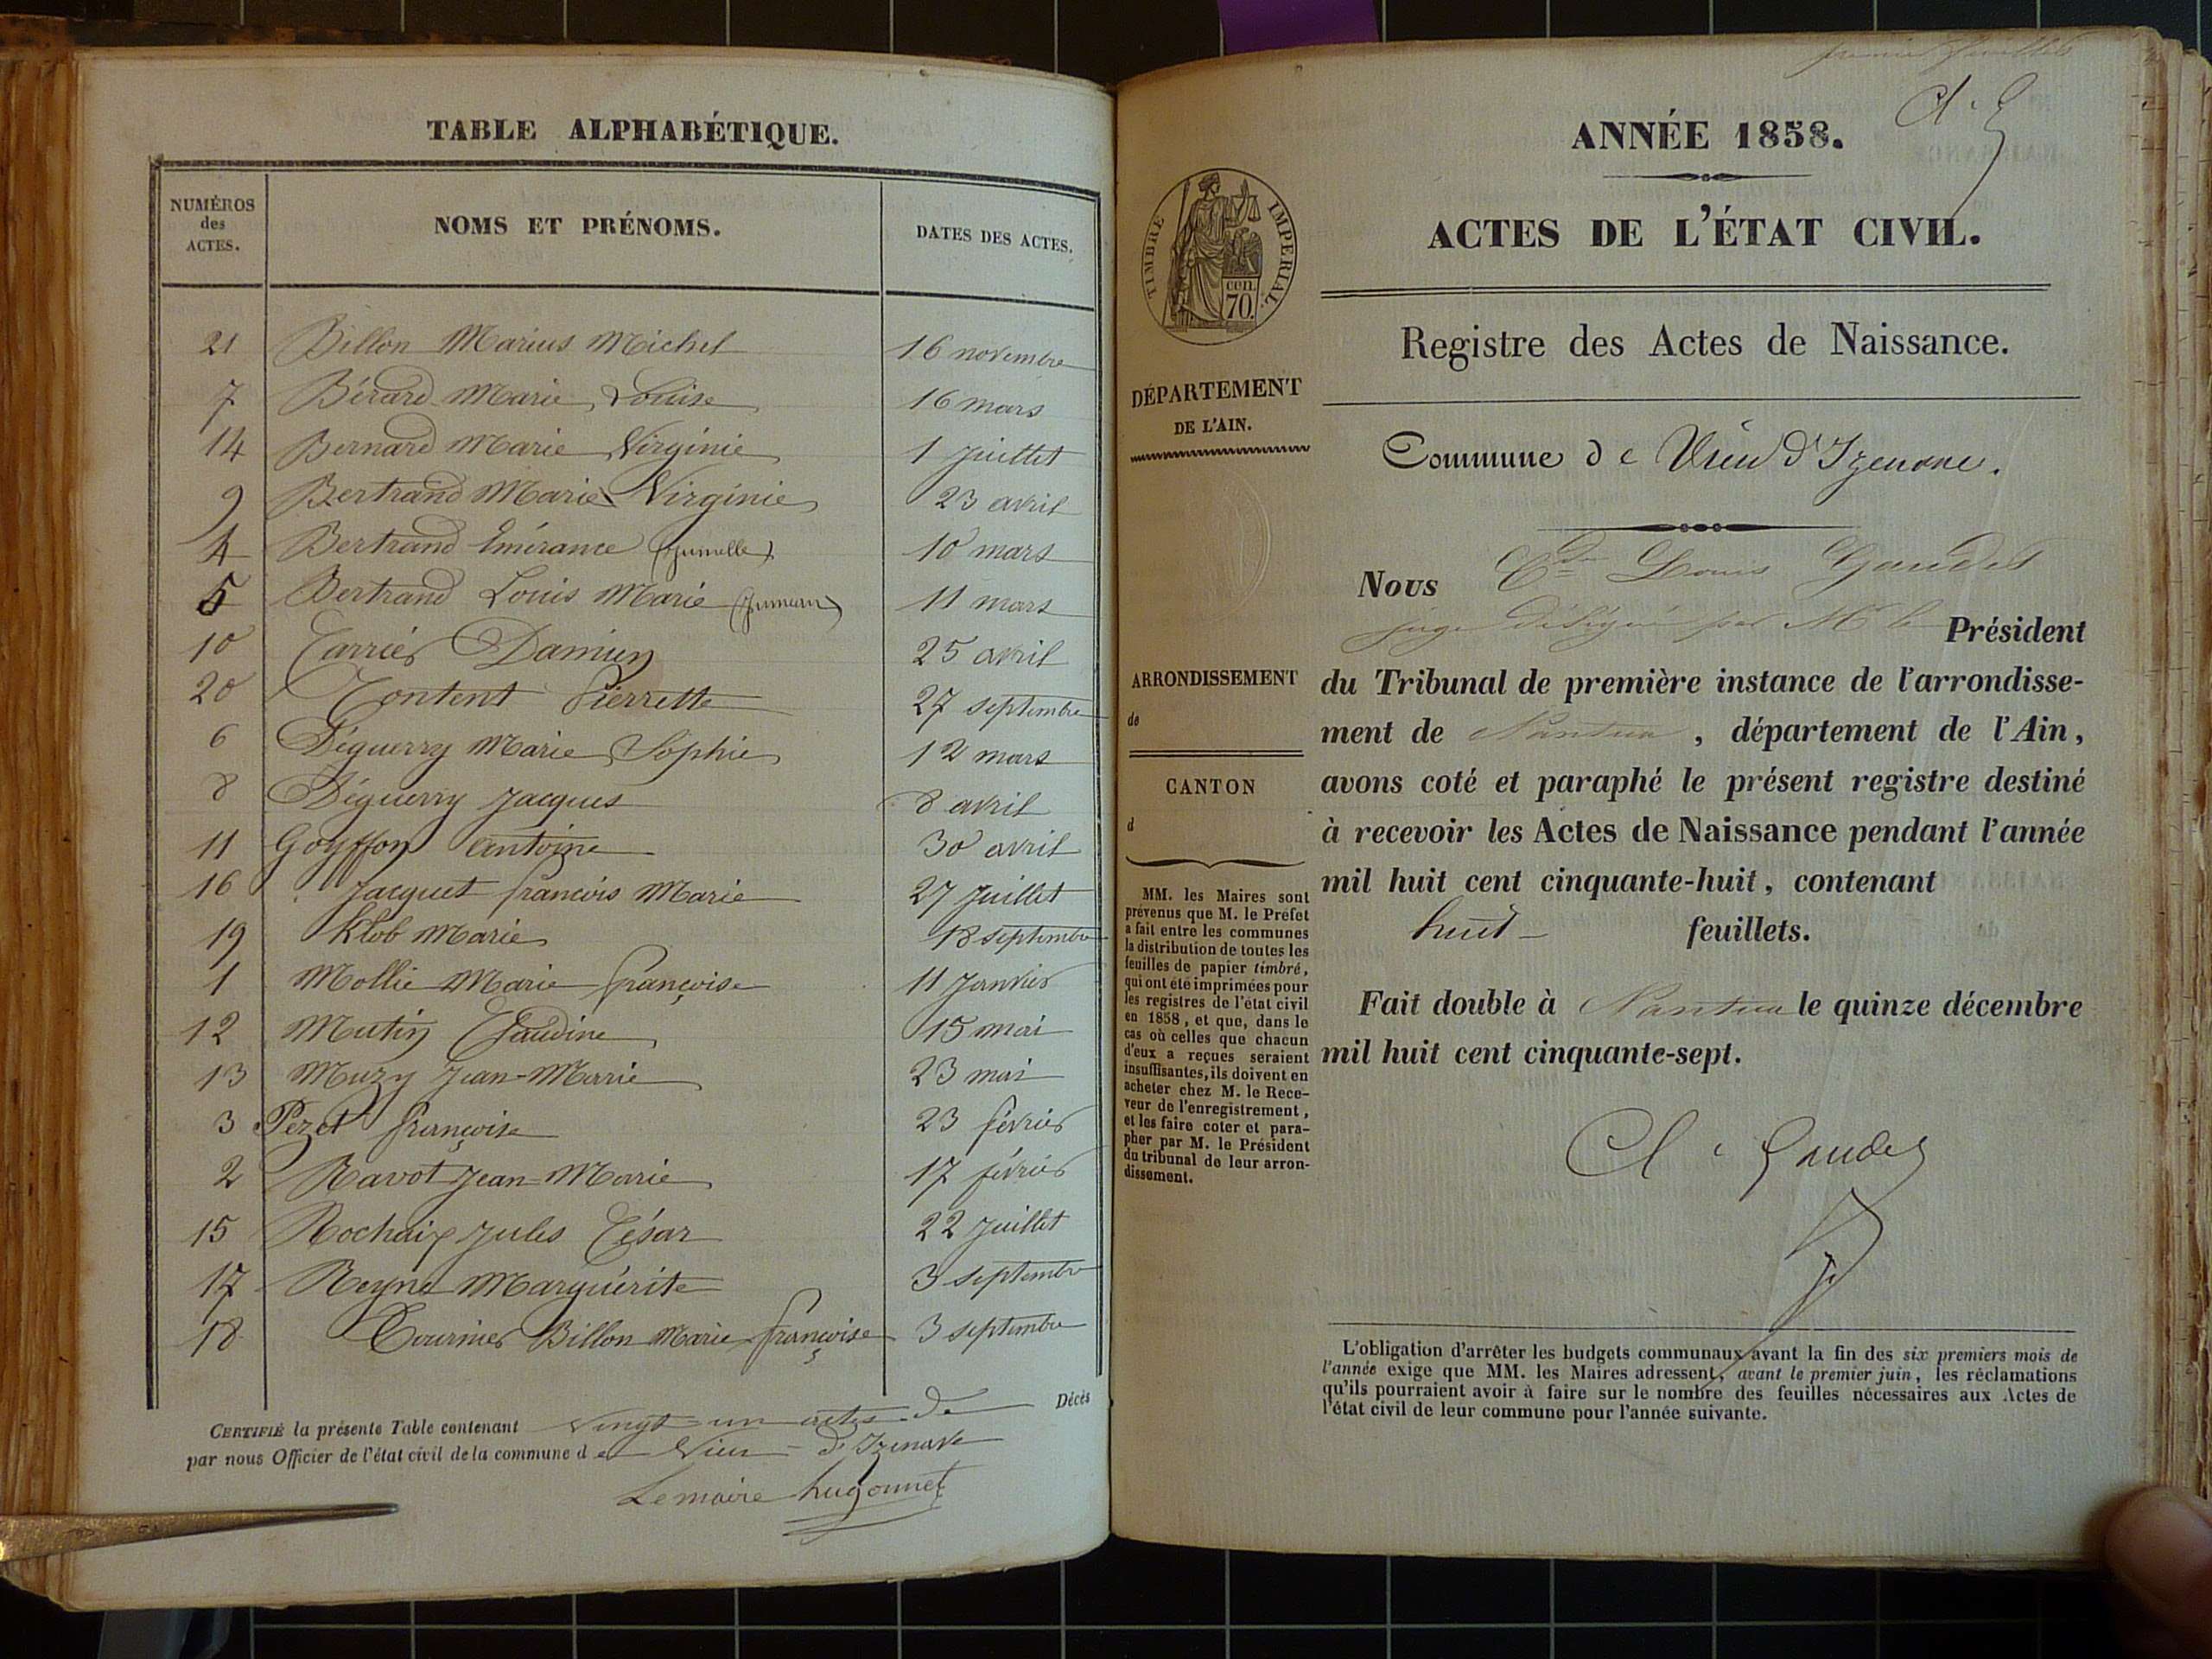 TABLE ALPHABÉTIQUE.
NUMÉROS des ACTES.
NOMS ET PRÉNOMS.
DATES DES ACTES.
21 Billon Marius Michel 16 novembre
7 Bérard Marie Louise 16 mars
14 Bernard Marie Virginie 1 Juillet
9 Bertrand Marie Virginie 23 avril
4 Bertrand Émérance (jumelle) 10 mars
5 Bertrand Louis Marie (jumeau) 11 mars
10 Carrier Damien 25 avril
20 Content Pierrette 27 septembre
6 Déguerry Marie Sophie 12 mars
8 Déguerry Jacques 8 avril
11 Goyffon Antoine 30 avril
16 Jacquet françois Marie 27 Juillet
19 Klob Marie 18 septembre
1 Mollie Marie françoise 11 Janvier
12 Mutin Claudine 15 mai
13 Muzy Jean-Marie 23 mai
3 Pezet françoise 23 février
2 Ravot Jean-Marie 17 février
15 Rochaix Jules César 22 Juillet
17 Reyne Marguérite 3 septembre
18 Tournier Billon Marie françoise 3 septembre
CERTIFIÉ la présente Table contenant Vingt-un actes de Décès
par nous Officier de l'état civil de la commune de Vieu-d'Izenave
Le maire hugonnet
premier feuillet
ANNÉE 1858.
ACTES DE L'ÉTAT CIVIL.
TIMBRE IMPERIAL.
cen. 70.
Registre des Actes de Naissance.
DÉPARTEMENT
DE L'AIN.
Commune de Vieu d'Izenave.
Nous Louis Gaudet
juge désigné par Mr le Président
ARRONDISSEMENT
de
du Tribunal de première instance de l'arrondisse-
ment de Nantua, département de l'Ain,
CANTON
d
avons coté et paraphé le présent registre destiné
à recevoir les Actes de Naissance pendant l'année
mil huit cent cinquante-huit, contenant
huit feuillets.
Fait double à Nantua le quinze décembre
mil huit cent cinquante-sept.
MM. les Maires sont
prévenus que M. le Préfet
a fait entre les communes
la distribution de toutes les
feuilles de papier timbré,
qui ont été imprimées pour
les registres de l'état civil
en 1858, et que, dans le
cas où celles que chacun
d'eux a reçues seraient
insuffisantes, ils doivent en
acheter chez M. le Rece-
veur de l'enregistrement,
et les faire coter et para-
pher par M. le Président
du tribunal de leur arron-
dissement.
Gaudet
L'obligation d'arrêter les budgets communaux avant la fin des six premiers mois de
l'année exige que MM. les Maires adressent, avant le premier juin, les réclamations
qu'ils pourraient avoir à faire sur le nombre des feuilles nécessaires aux Actes de
l'état civil de leur commune pour l'année suivante.